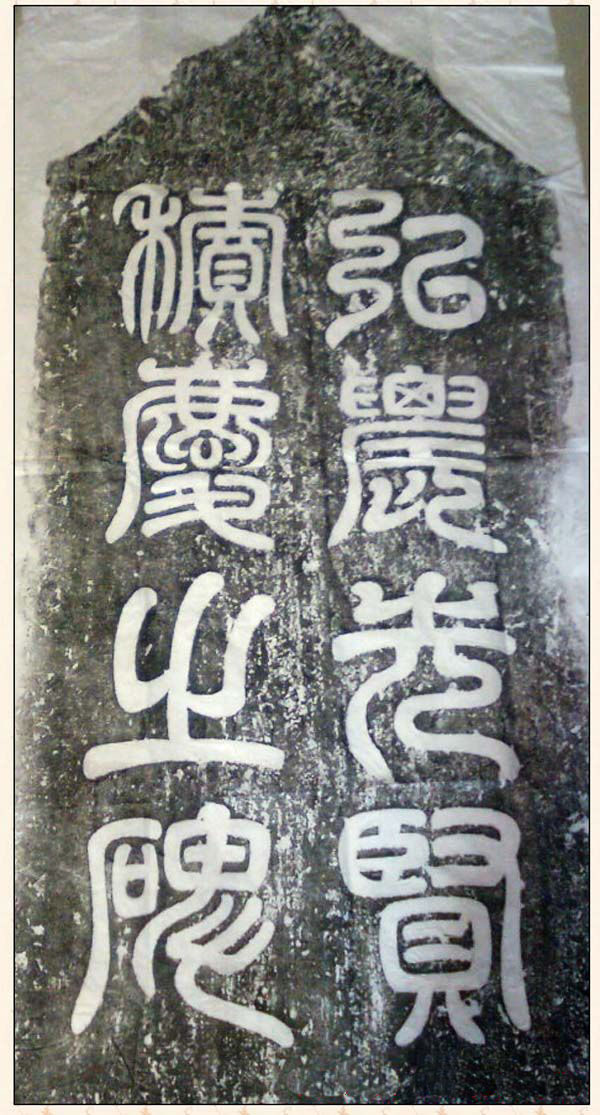 弘農先賢
積慶之碑